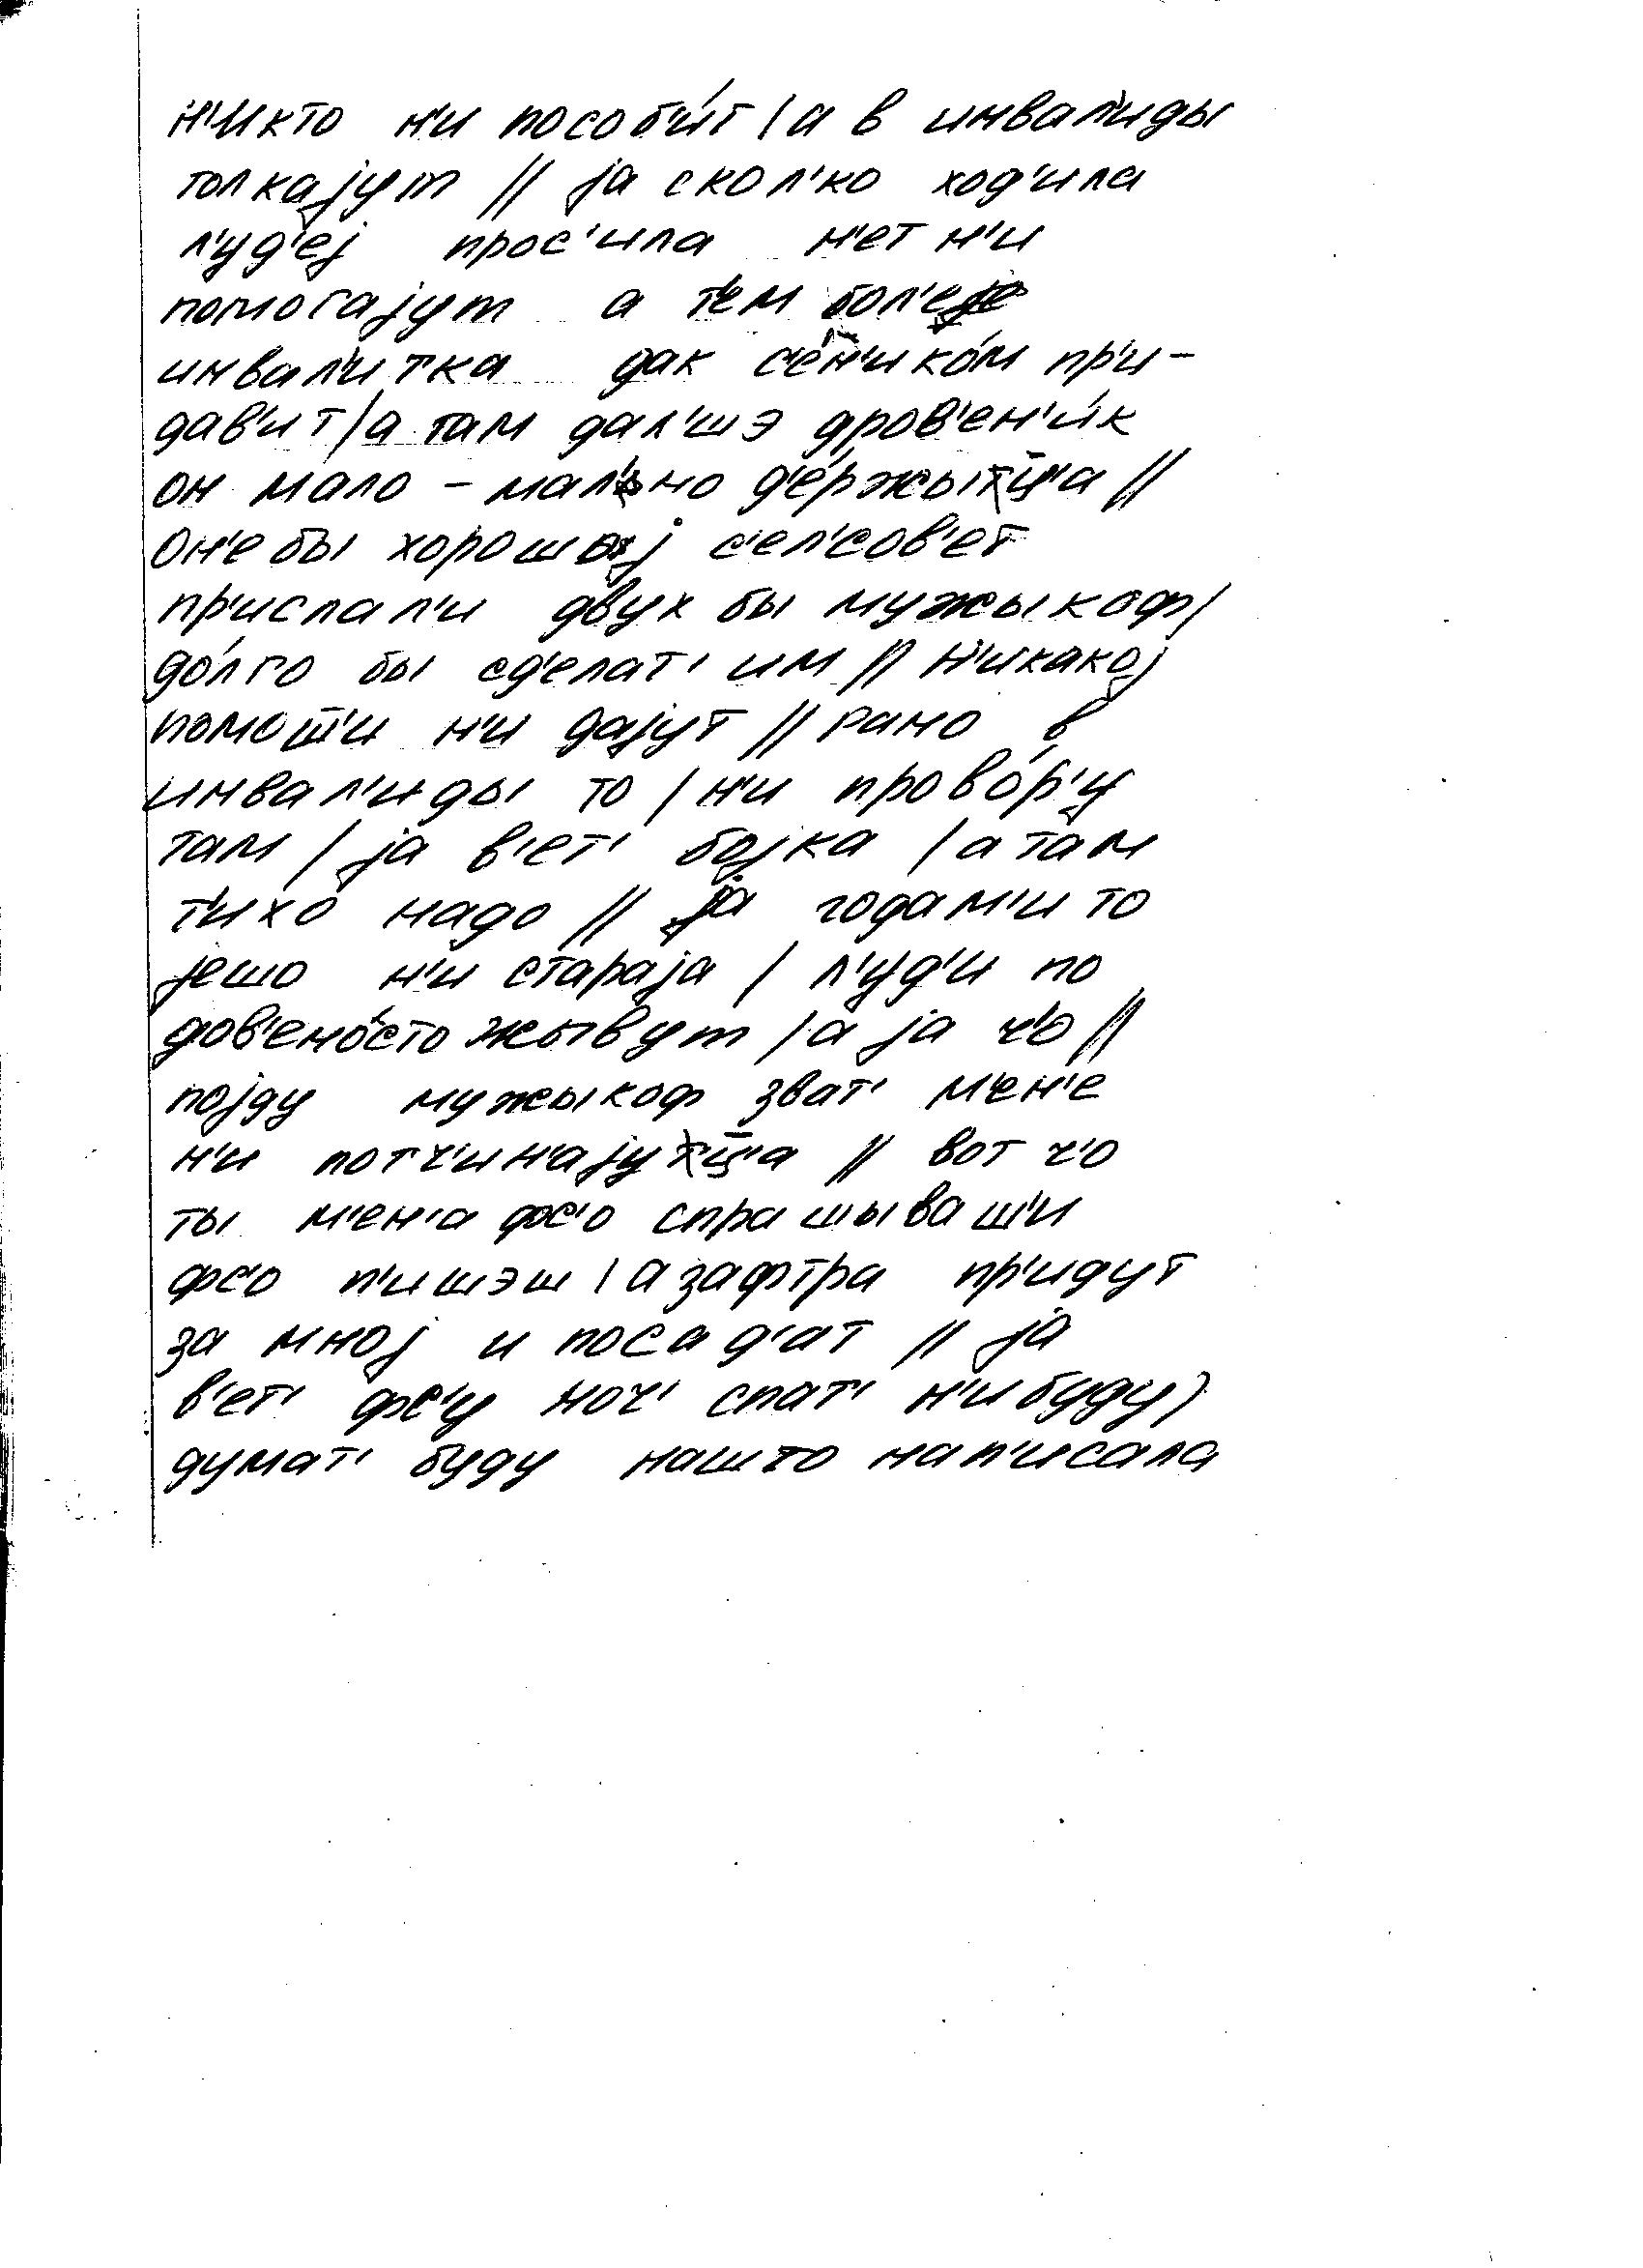 н'икто н'и пособ'и́т / а в инвал'иды
толкаjут // jа скол'ко ход'ила
л'уд'еj прос'ила н'ет н'и
помогаjут а т'ем бол'еjе
инвал'итка дак с'е́н'ико́м пр'и-
дав'ит / а там дал'шэ дров'ен'и́к
он мало - мал'но д'е́ржыц̄а //
он'е бы хорошыj с'ел'сов'ет
пр'ислал'и двух бы мужыкоф /
до́лго бы сд'елат' им // н'икакоj
помош̄'и н'и даjут // рано в
инвал'иды то / н'и прово́р'у
там / jа в'ет' боjка / а там
т'ихо́ надо // jа годам'и то
jешо н'и стараjа / л'уд'и по
дов'ено́сто жывут / а jа ч'о //
поjду мужыкоф зват' м'ен'е
н'и потч'ин'аjуц̄а // вот ч'о
ты м'ен'а фс'о спрашываш'и
фс'о п'ишэш / а зафтра пр'идут
за мноj и посад'ат // jа
в'ет' фс'у ноч' спат' н'и буду /
думат' буду нашто нап'исала